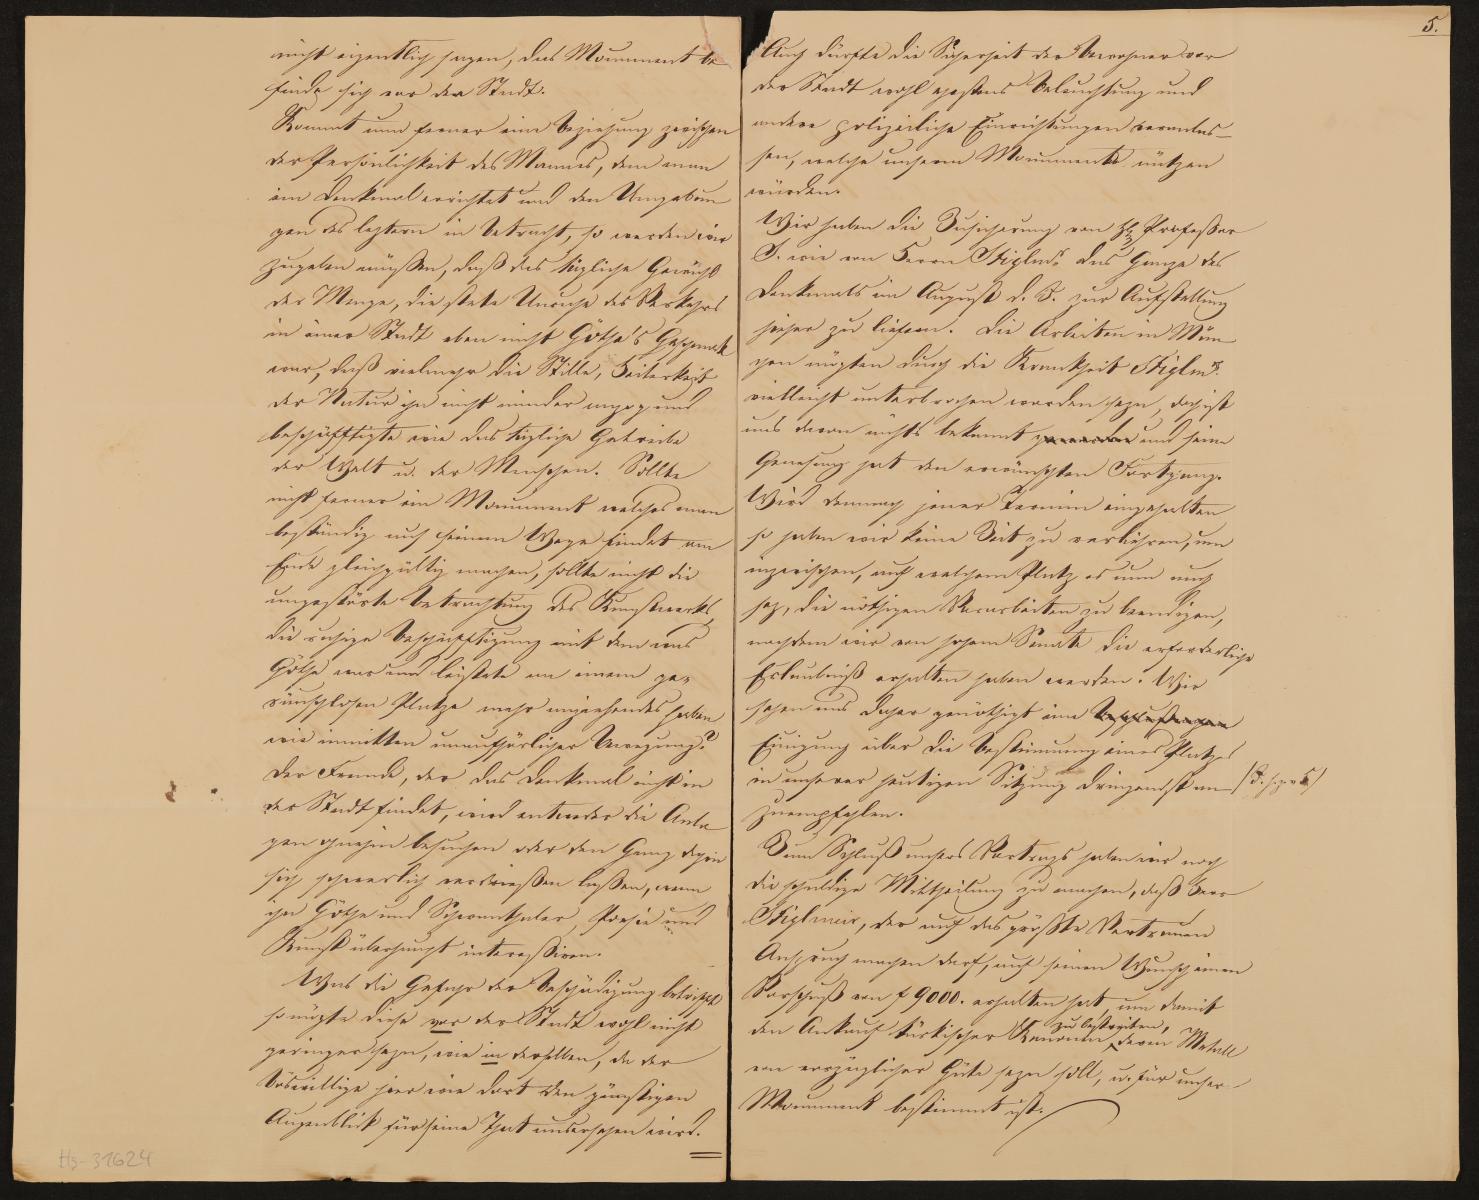 nicht eigentlich sagen, das Monument be
finde sich vor der Stadt.
Kommt nun ferner eine Beziehung zwischen
der Persönlichkeit des Mannes, dem man
ein Denkmal errichtet und den Umgebun
gen des leztern in Betracht, so werden wir
zugeben müssen, daß das tägliche Gewühl
der Menge, die stete Unruhe des Verkehrs
in einer Stadt eben nicht Göthe's Geschmack
war, daß vielmehr die Stille, Heiterkeit
der Natur ihn nicht minder anzog und
beschäfftigte wie das tägliche Getriebe
der Welt u. der Menschen. Sollte
nicht ferner ein Monument welches man
beständig auf seinem Wege findet am
Ende gleichgültig machen, sollte nicht die
ungestörte Betrachtung des Kunstwerks,
die ruhige Beschäfftigung mit dem was
Göthe war und leistete an einem ge-
räuschlosen Platze mehr anziehendes haben
wie inmitten unaufhörlicher Bewegung?
Der Fremde, der das Denkmal nicht in
der Stadt findet, wird entweder die Anla
gen ohnehin besuchen oder den Gang dahin
sich schwerlich verdrießen laßen, wenn
ihn Göthe und Schwanthaler, Poesie und
Kunst überhaupt interessiren.
Was die Gefahr der Beschädigung betrifft
so mögte diese vor der Stadt wohl nicht
geringer seyn, wie in derselben, da der
Böswillige hier wie dort den günstigen
Augenblick für seine That ausersehen wird.
Hs-31624
5.
Auch dürfte die Sicherheit der Bewohner vor
der Stadt wohl ehestens Beleuchtung und
andere polizeiliche Einrichtungen veranlas-
sen, welche unserm Monumente nützen
würden.
Wir haben die Zusicherung von Professor
S. wie von Herrn Stiglmr. das Ganze des
Denkmals im August d. J. zur Aufstellung
hieher zu liefern. Die Arbeiten in Mün
chen mögten durch die Krankheit Stiglmr.
vielleicht unterbrochen worden seyn, doch ist
uns davon nichts bekannt und seine
Genesung hat den erwünschten Fortgang.
Wird demnach jener Termin eingehalten
so haben wir keine Zeit zu verliehren, um
inzwischen, auf welchem Platz es nun auch
sey, die nöthigen Vorarbeiten zu beendigen,
nachdem wir von hohem Senate die erforderliche
Erlaubniß erhalten haben werden. Wir
sehen uns daher genöthigt eine
Einigung über die Bestimmung eines Platzes
in unserer heutigen Sitzung dringendst an
zuempfehlen.
Zum Schluß unsers Vortrags haben wir noch
die schuldige Mittheilung zu machen, daß Herr
Stiglmair, der auf das größte Vertrauen
Anspruch machen darf, auf seinen Wunsch einen
Vorschuß von f 9000. erhalten hat, um damit
den Ankauf türkischer Kanonen zu bestreiten, deren Metall
von vorzüglicher Güte seyn soll, u. für unser
Monument bestimmt ist.